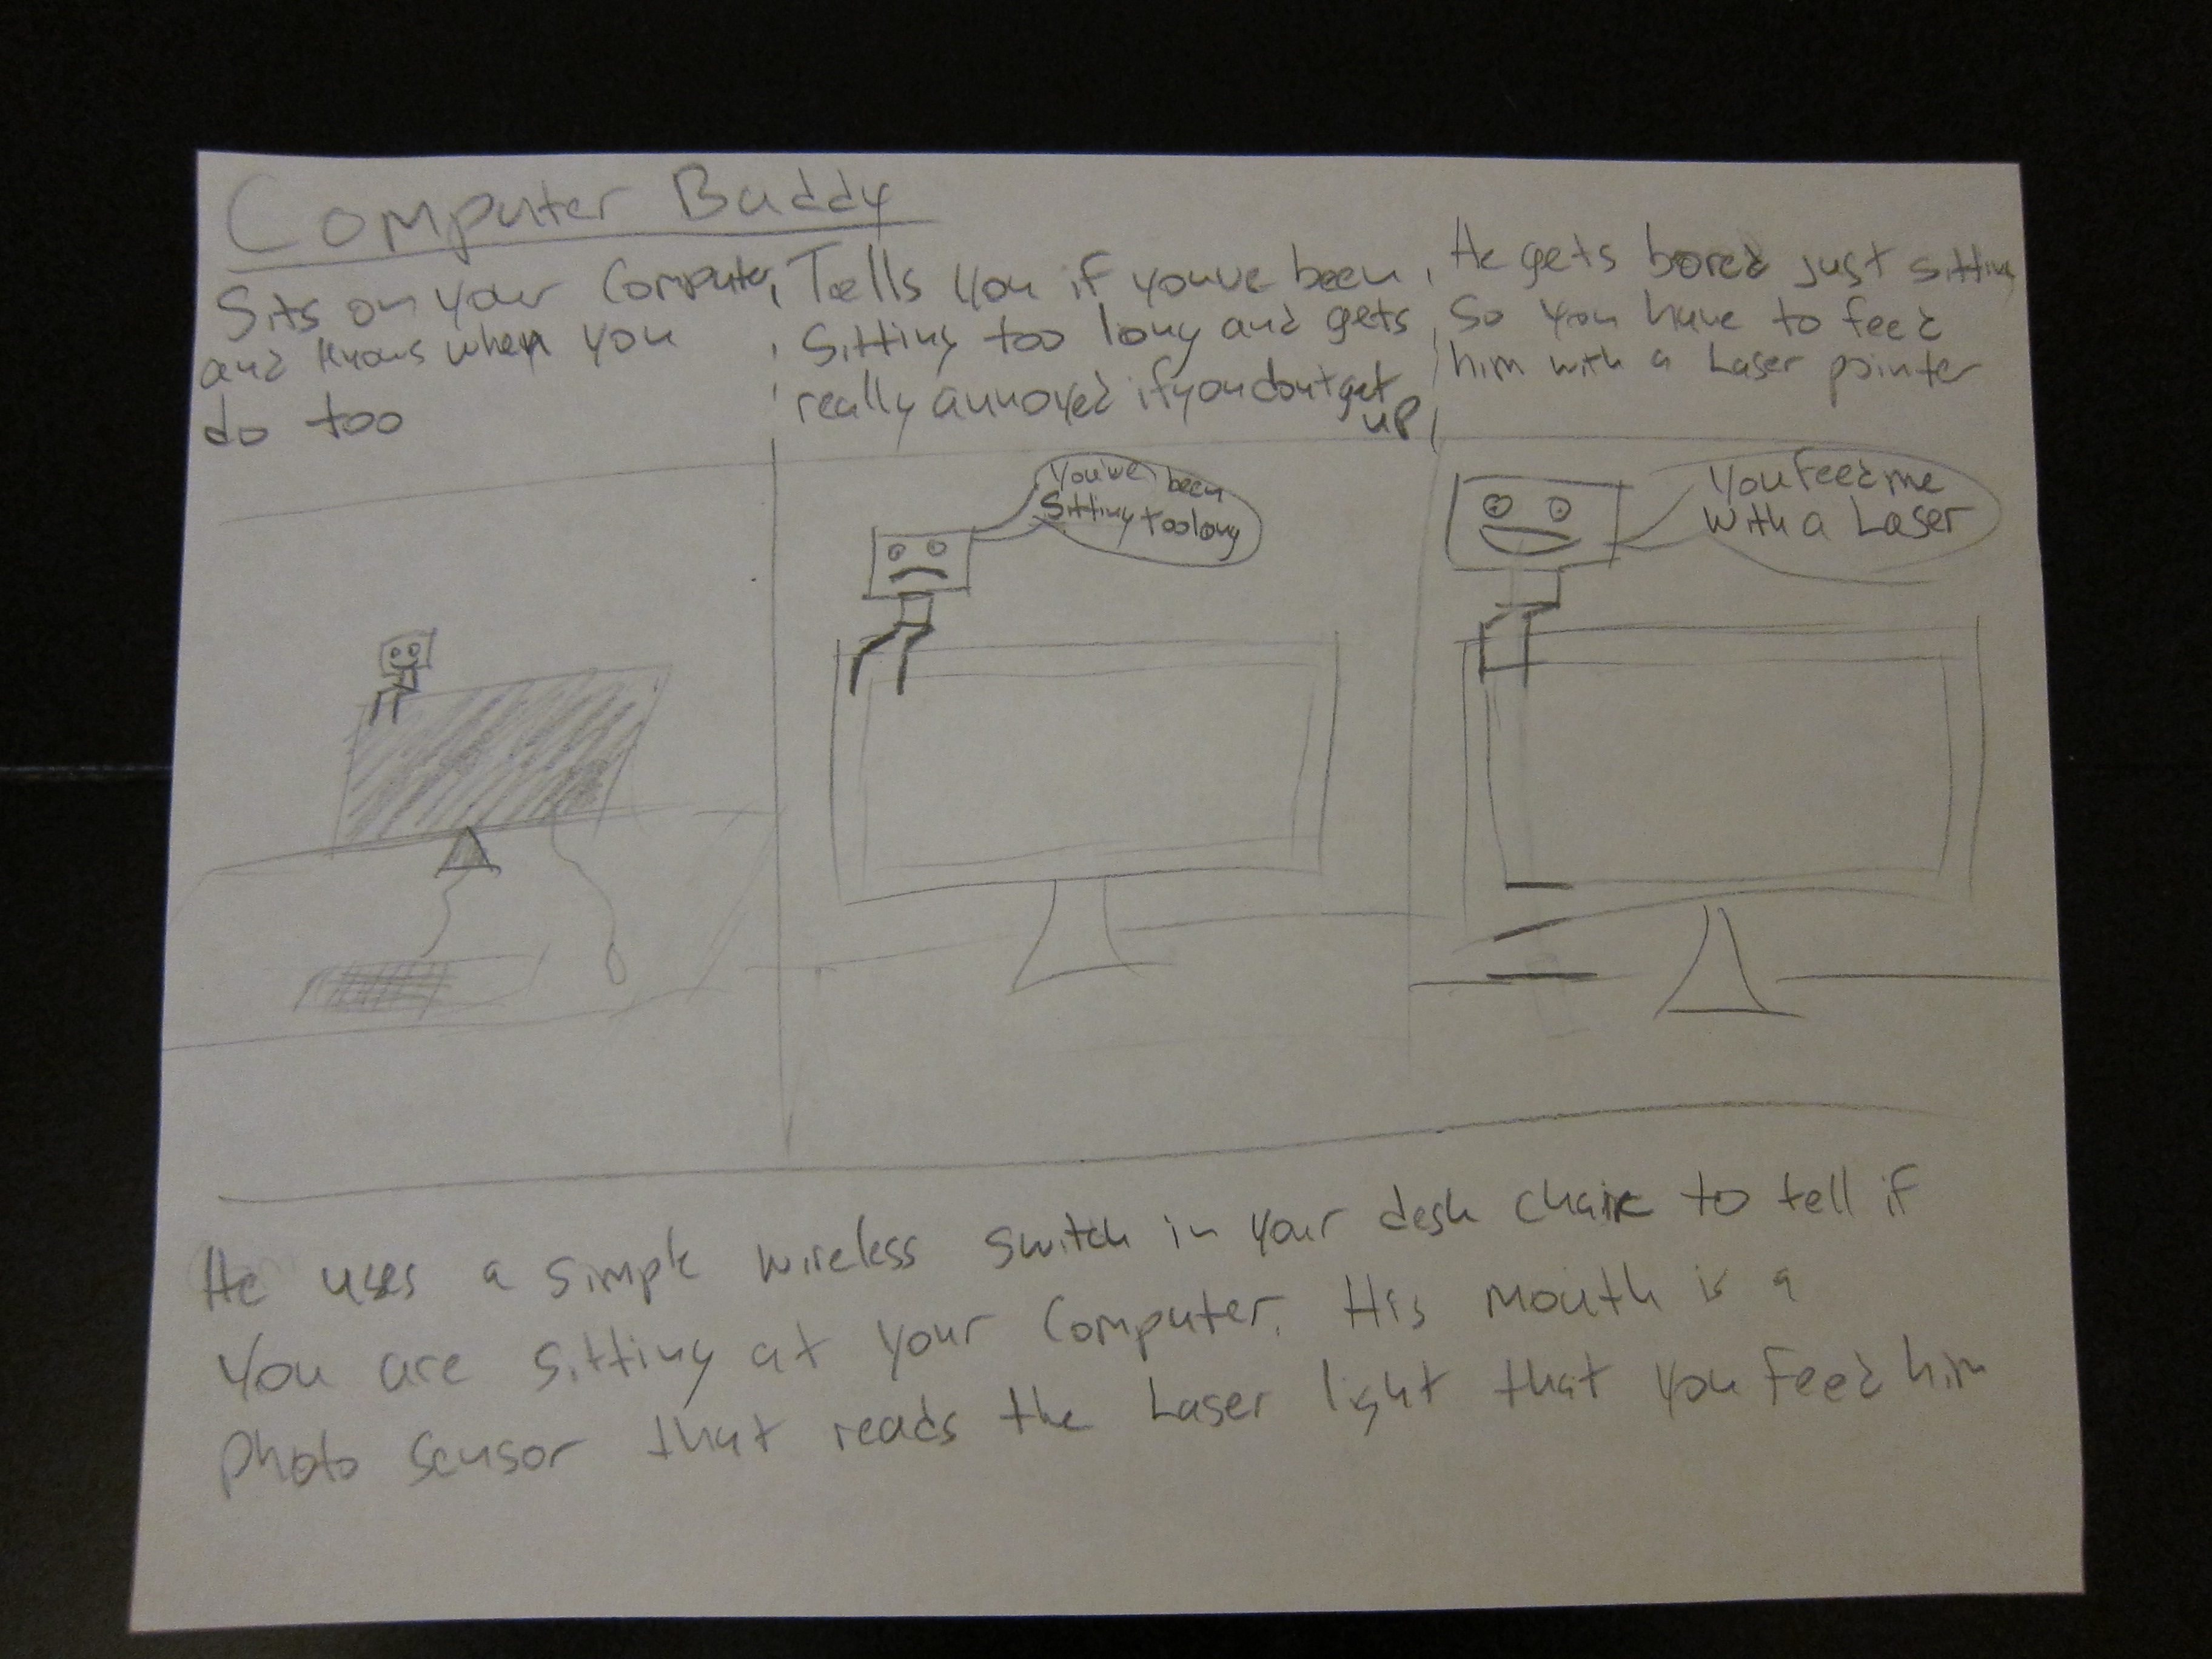 Computer Buddy
Sits on your Computer
and knows when you
do too
Tells you if youve been
Sitting too long and gets
really annoyed if you dont get
up
He gets bored just sitting
So you have to feed
him with a Laser pointer
You've been
Sitting too long
You feed me
with a Laser
He uses a simple wireless switch in your desk chair to tell if
You are sitting at your Computer. His mouth is a
photo sensor that reads the Laser light that you feed him